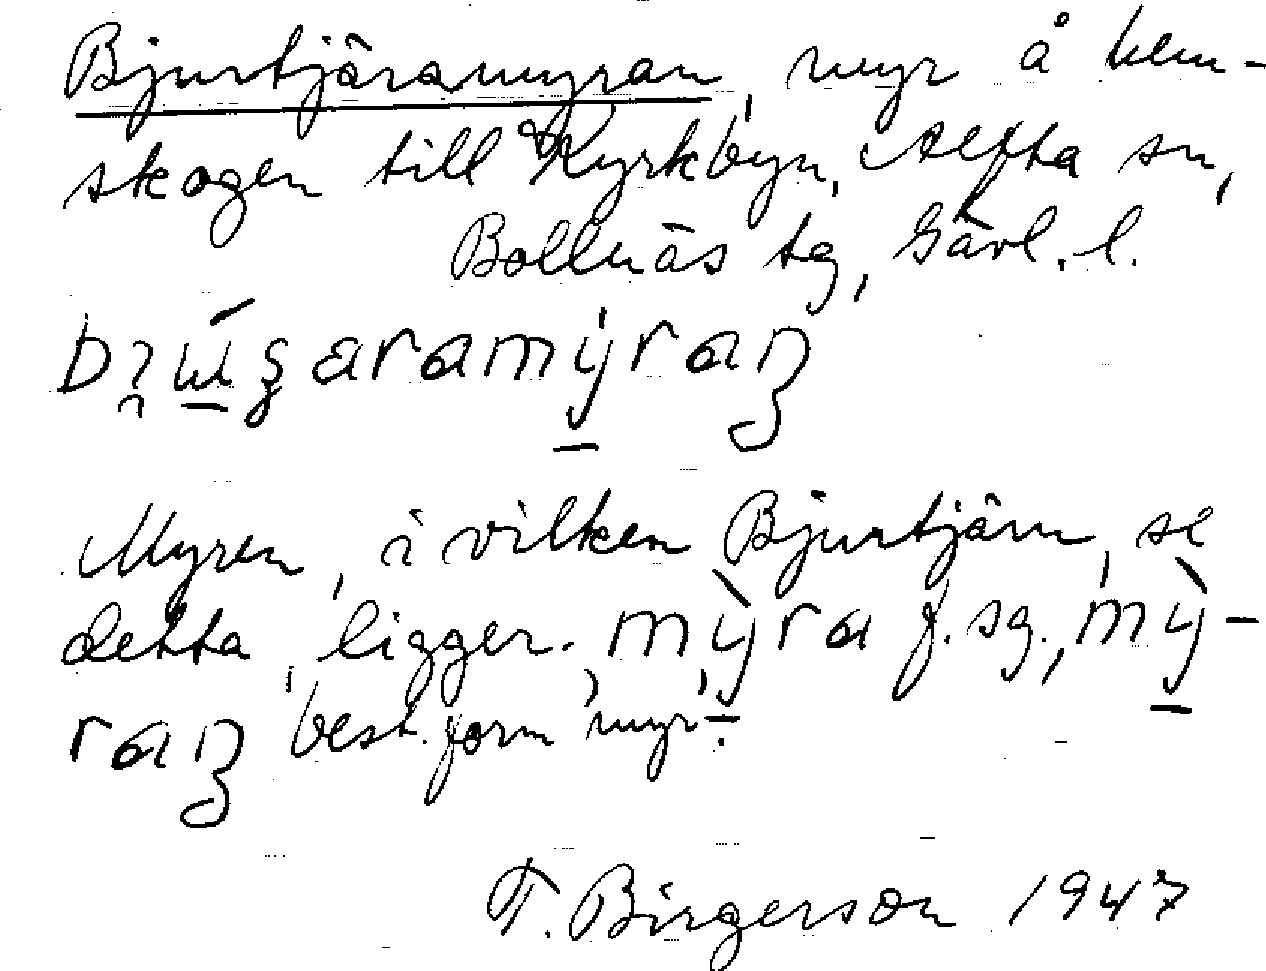 Bjurtjäramyran, myr å hem-
skogen till Kyrkbyn, Alfta sn,
Bollnäs tg, Gävl. l.
Myren, i vilken Bjurtjärn, se
detta, ligger. myra f. sg., mý-
ran best. form 'myr'.
T. Birgerson 1947